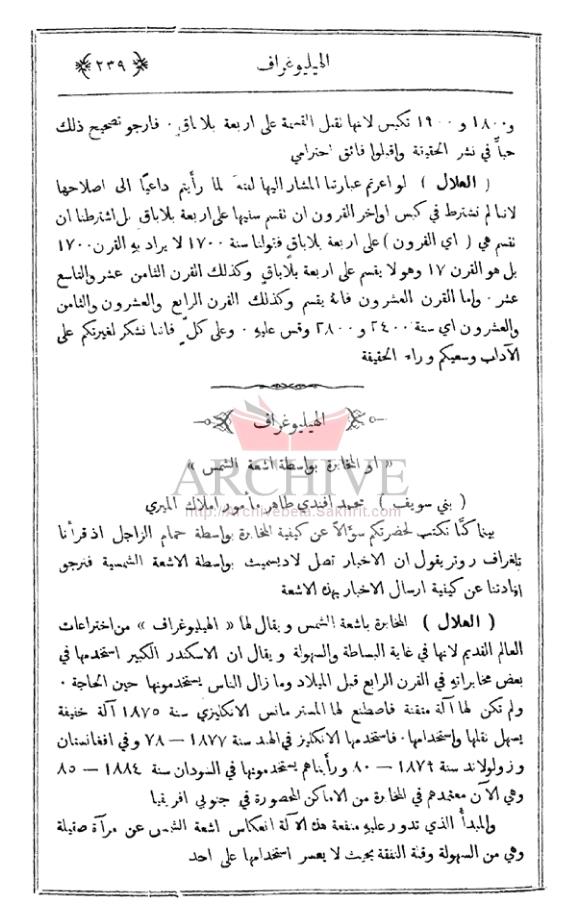 الهيليوغراف
﴿ ٢٣٩ ﴾
و١٨٠٠ و ١٩٠٠ تكبس لانها تقبل القسمة على اربعة بلا باقٍ . فارجو تصحيح ذلك
حبًّا في نشر الحقيقة واقبلوا فائق احترامي
( الهلال ) لو اعرتم عبارتنا المشار اليها لفتة لما رأيتم داعيًا الى اصلاحها
لاننا لم نشترط في كبس اواخر القرون ان تقسم سنيها على اربعة بلا باقٍ بل اشترطنا ان
تقسم هي ( اي القرون ) على اربعة بلا باقٍ فقولنا سنة ١٧٠٠ لا يراد به القرن ١٧٠٠
بل هو القرن ١٧ وهو لا يقسم على اربعة بلا باقٍ وكذلك القرن الثامن عشر والتاسع
عشر . واما القرن العشرون فانه يقسم وكذلك القرن الرابع والعشرون والثامن
والعشرون اي سنة ٢٤٠٠ و ٢٨٠٠ وقس عليه . وعلى كلٍّ فاننا نشكر لغيرتكم على
الآداب وسعيكم وراء الحقيقة
الهيليوغراف
« او المخابرة بواسطة اشعة الشمس »
ARCHIVE
http://Archivebeta.Sakhrit.com
( بني سويف ) محمد افندي طاهر مأمور املاك الميري
بينا كنَّا نكتب لحضرتكم سؤالاً عن كيفية المخابرة بواسطة حمام الزاجل اذ قرأنا
تلغراف روتر يقول ان الاخبار تصل لاديسميث بواسطة الاشعة الشمسية فنرجو
افادتنا عن كيفية ارسال الاخبار بهذه الاشعة
( الهلال ) المخابرة باشعة الشمس ويقال لها « الهيليوغراف » من اختراعات
العالم القديم لانها في غاية البساطة والسهولة ويقال ان الاسكندر الكبير استخدمها في
بعض مخابراته في القرن الرابع قبل الميلاد وما زال الناس يستخدمونها حين الحاجة .
ولم تكن لها آلة متقنة فاصطنع لها المستر مانس الانكليزي سنة ١٨٧٥ آلة خفيفة
يسهل نقلها واستخدامها . فاستخدمها الانكليز في الهند سنة ١٨٧٧ — ٧٨ وفي افغانستان
وزولولاند سنة ١٨٧٩ — ٨٠ ورأيناهم يستخدمونها في السودان سنة ١٨٨٤ — ٨٥
وهي الآن معتمدهم في المخابرة من الاماكن المحصورة في جنوبي افريقيا
والمبدأ الذي تدور عليه منفعة هذه الآلة انعكاس اشعة الشمس عن مرآة صقيلة
وهي من السهولة وقلة النفقة بحيث لا يعسر استخدامها على احد